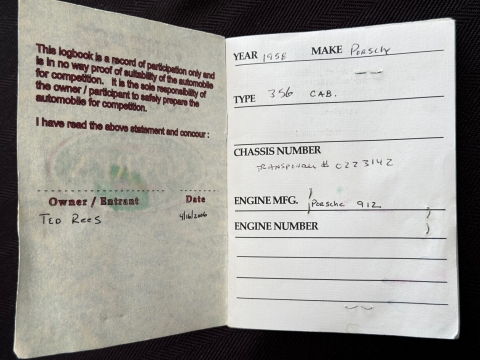 This logbook is a record of participation only and
is in no way proof of suitability of the automobile
for competition. It is the sole responsibility of
the owner / participant to safely prepare the
automobile for competition.
I have read the above statement and concour :
Owner / Entrant Date
TED REES 4/16/2006
YEAR 1958 MAKE PORSCHE
TYPE 356 CAB.
CHASSIS NUMBER
TRANSPONDER # 0223142
ENGINE MFG. PORSCHE 912
ENGINE NUMBER